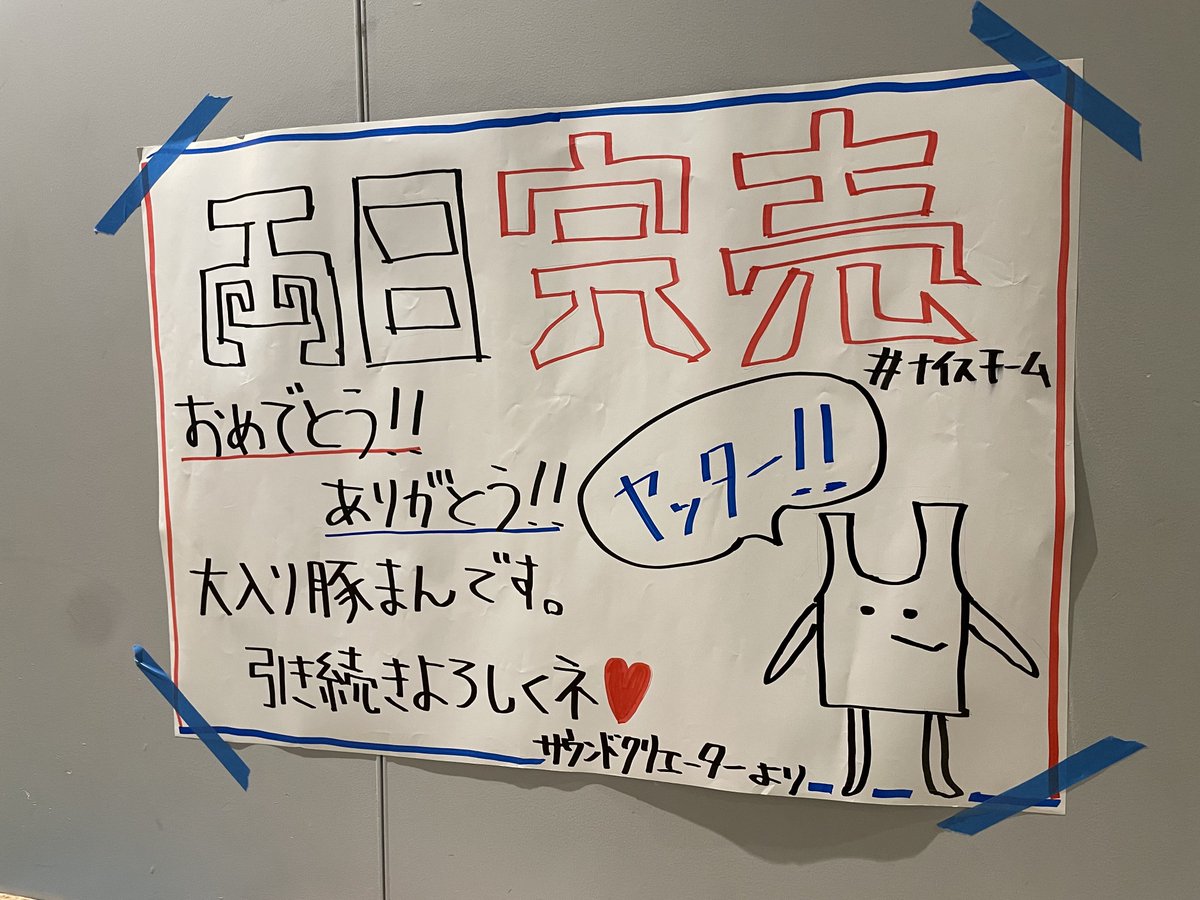 両日完売
#ナイスモーム
おめでとう!!
ありがとう!!
ヤッター!!
大入り豚まんです。
引き続きよろしくネ♥
サウンドクリエーターより